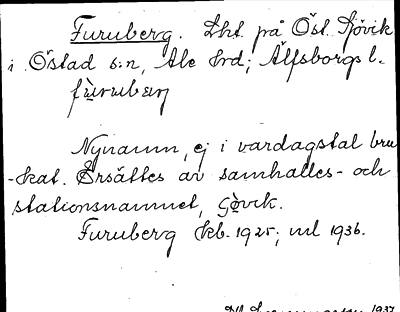 Furuberg. Lht. på Öst. Sjövik
i Östad s:n, Ale hrd; Älfsborgs l.
fùruberj
Nynamn, ej i vardagstal bru
-kat. Ersättes av samhälles- och
stationsnamnet,
Furuberg Kb. 1925; ml 1936.
1937